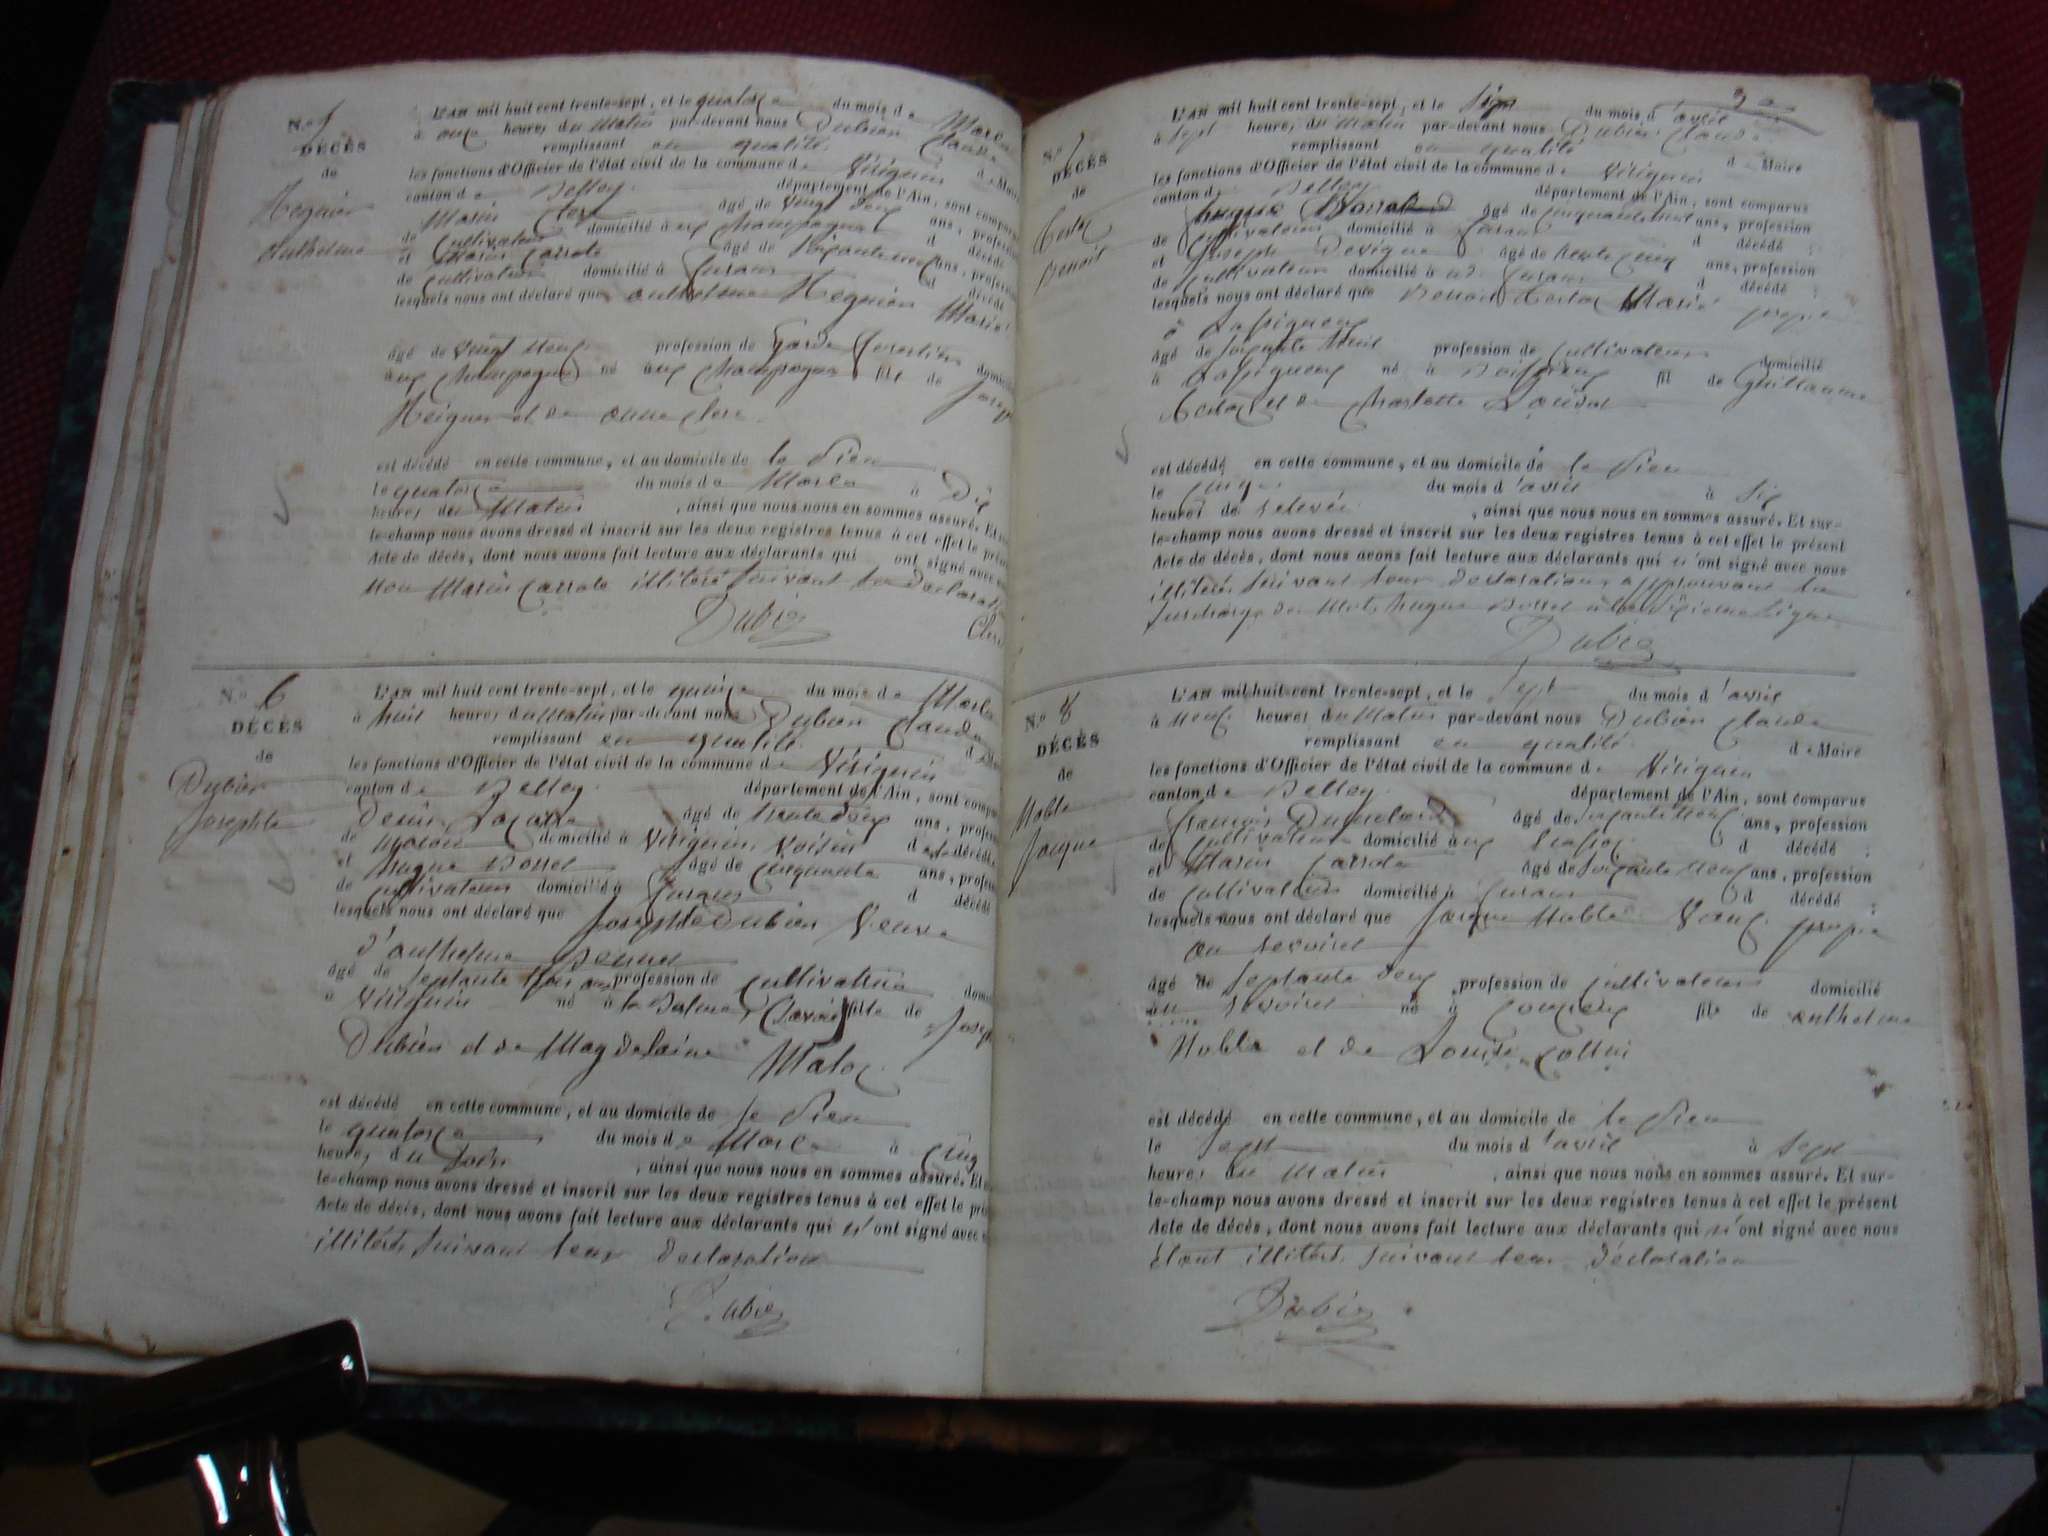 N.° 5
DÉCÈS
de
Anthelme
L'AN mil huit cent trente-sept, et le quatorze du mois de Mars
à onze heures du Matin par-devant nous Dubien Claude
remplissant en qualité
les fonctions d'Officier de l'état civil de la commune de Virignin de Maire
canton de Belley département de l'Ain, sont comparus
Marin Clerc âgé de vingt deux ans, profession
de Cultivateur domicilié à aux Champagnes d décédé
et Marin Carrote âgé de soixante neuf ans, profession
de Cultivateur domicilié à d décédé
lesquels nous ont déclaré que anthelme Marié
âgé de vingt neuf profession de Garde forestier domicilié
aux Champagnes né aux Champagnes fil de Joseph
et de anne Clerc
est décédé en cette commune, et au domicile de le sien
le quatorze du mois de Mars à Dix
heures du Matin, ainsi que nous nous en sommes assuré. Et sur-
le-champ nous avons dressé et inscrit sur les deux registres tenus à cet effet le présent
Acte de décès, dont nous avons fait lecture aux déclarants qui ont signé avec nous
non Marin Carrote illitéré suivant sa déclaration
Dubien Clerc
N.° 6
DÉCÈS
de
Dubien
Josephte
L'AN mil huit cent trente-sept, et le quinze du mois de Mars
à huit heures du Matin par-devant nous Dubien Claude
remplissant en qualité
les fonctions d'Officier de l'état civil de la commune de Virignin
canton de Belley département de l'Ain, sont comparus
Denis âgé de trente deux ans, profession
de Maçon domicilié à Virignin, Voisin de la décédée
et hugue Bossel âgé de cinquante ans, profession
de Cultivateur domicilié à d décédé
lesquels nous ont déclaré que Josephte Dubien Veuve
d'anthelme
âgé de septante trois ans profession de Cultivatrice domicilié
à Virignin né à la Balme, fille de Joseph
Dubien et de Magdelaine
est décédé en cette commune, et au domicile de le sien
le quatorze du mois de Mars à cinq
heures du Soir, ainsi que nous nous en sommes assuré. Et
le-champ nous avons dressé et inscrit sur les deux registres tenus à cet effet le présent
Acte de décès, dont nous avons fait lecture aux déclarants qui n'ont signé avec
illitérés suivant leur déclaration
Dubien
N.° 7
DÉCÈS
de
Benoit
L'AN mil huit cent trente-sept, et le six du mois d'avril
à sept heures du Matin par-devant nous Dubien Claude
remplissant en qualité
les fonctions d'Officier de l'état civil de la commune de Virignin de Maire
canton de Belley département de l'Ain, sont comparus
hugue âgé de ans, profession
de Cultivateur domicilié à d décédé
et Joseph âgé de trente cinq ans, profession
de Cultivateur domicilié à d décédé
lesquels nous ont déclaré que Benoit Marié
à
âgé de soixante huit profession de Cultivateur domicilié
à né à fil de Guillaume
et de Charlotte
est décédé en cette commune, et au domicile de le sien
le cinq du mois d'avril à Six
heures de relevée, ainsi que nous nous en sommes assuré. Et sur-
le-champ nous avons dressé et inscrit sur les deux registres tenus à cet effet le présent
Acte de décès, dont nous avons fait lecture aux déclarants qui n'ont signé avec nous
illitérés suivant leur déclaration approuvant la
surcharge des Mots hugue Bossel à la Sixième Ligne
Dubien
N.° 8
DÉCÈS
de
Noble
Jacque
L'AN mil huit cent trente-sept, et le sept du mois d'avril
à Neuf heures du Matin par-devant nous Dubien Claude
remplissant en qualité
les fonctions d'Officier de l'état civil de la commune de Virignin de Maire
canton de Belley département de l'Ain, sont comparus
françois âgé de soixante Neuf ans, profession
de Cultivateur domicilié à d décédé
et Marin Carrote âgé de soixante neuf ans, profession
de Cultivateur domicilié à d décédé
lesquels nous ont déclaré que Jacque Noble
au
âgé de septante deux profession de Cultivateur domicilié
au né à fils de anthelme
Noble et de Louise
est décédé en cette commune, et au domicile de le sien
le sept du mois d'avril à sept
heures du Matin, ainsi que nous nous en sommes assuré. Et sur-
le-champ nous avons dressé et inscrit sur les deux registres tenus à cet effet le présent
Acte de décès, dont nous avons fait lecture aux déclarants qui n'ont signé avec nous
étant illitérés suivant leur déclaration
Dubien